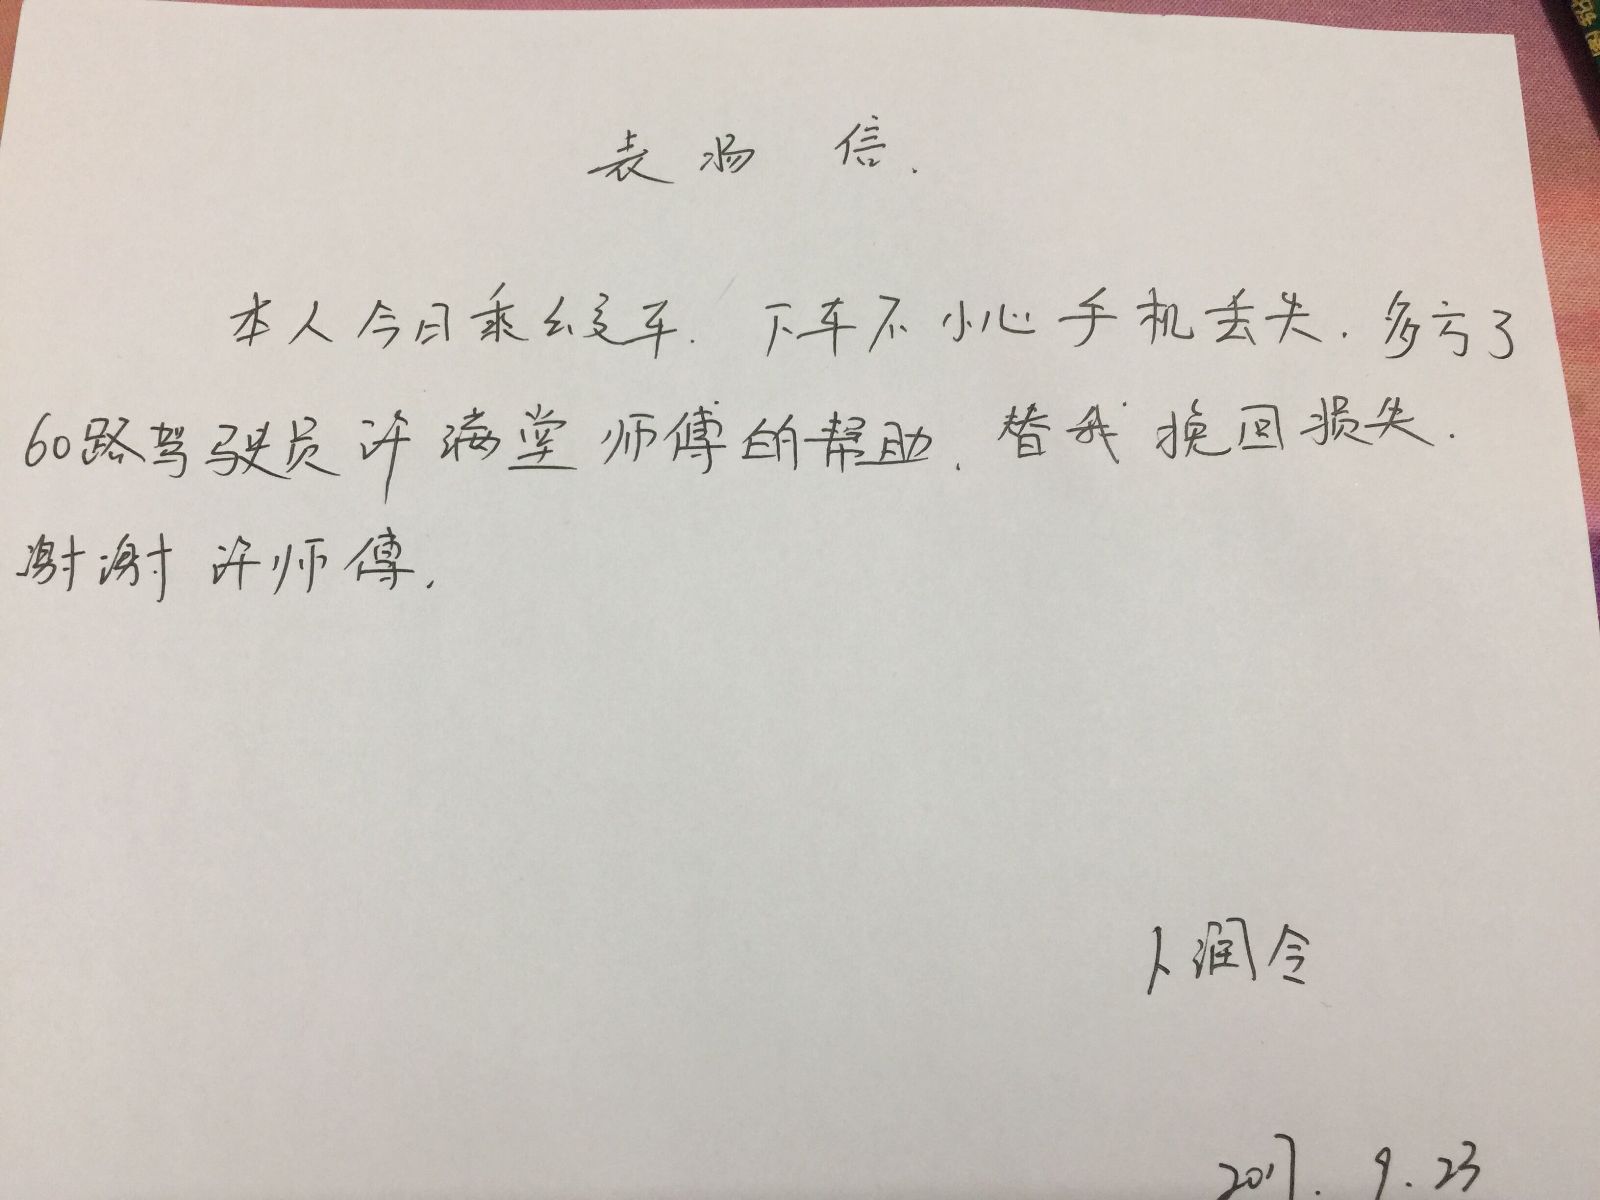 表扬信.
本人今日乘公交车. 下车不小心手机丢失. 多亏了
60路驾驶员许海堂师傅的帮助. 替我挽回损失.
谢谢许师傅.
卜润令
2017. 9. 23